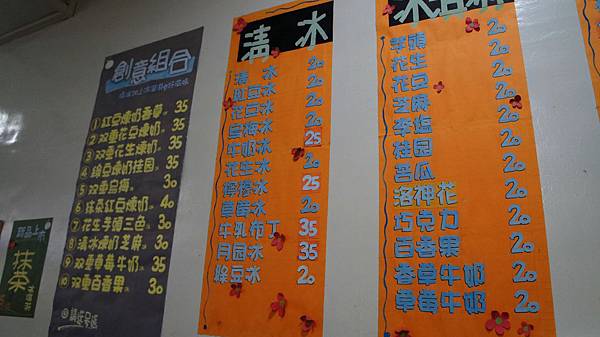 新品上市
抹
茶
創意組合
①紅豆煉奶香草.35
②双重花豆煉奶.35
③双重花生煉奶.35
④綠豆煉奶桂园.35
⑤双重烏梅.30
⑥抹茶紅豆煉奶.40
⑦花生芋頭三色.30
⑧清冰煉奶芝麻.30
⑨双重草莓牛奶.35
⑩双重百香果.30
清冰
清冰 20
紅豆冰 20
花豆冰 20
烏梅冰 20
牛奶冰 25
花生冰 20
檸檬冰 25
草莓冰 20
牛乳布丁 35
月园冰 35
綠豆冰 20
芋頭 20
花生 20
花豆 20
芝麻 20
李塩 20
桂园 20
苦瓜 20
洛神花 20
巧克力 20
百香果 20
香草牛奶 20
草莓牛奶 20